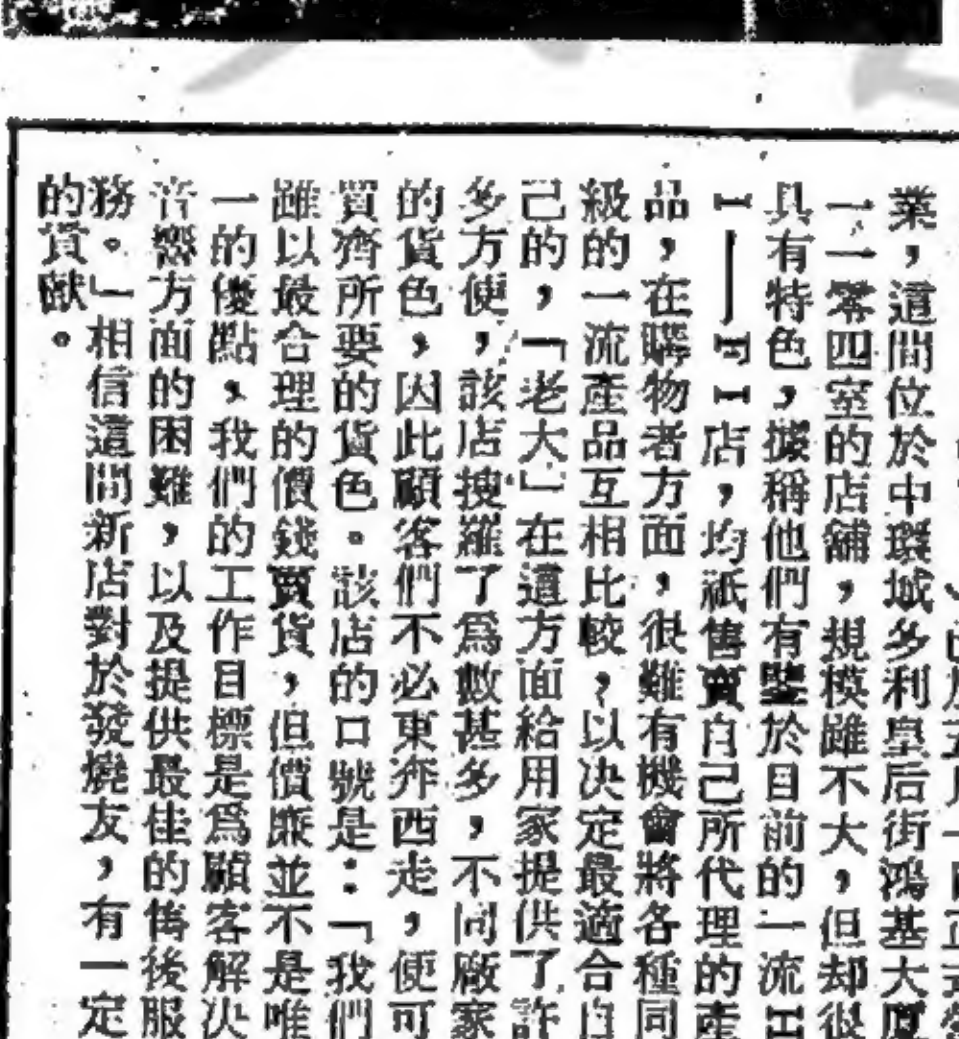 業，這間位於中環域多利皇后街鴻基大厦
一一零四室的店舖，規模雖不大，但却很
具有特色，據稱他們有鑒於目前的一流H
I──FI店，均祇售賣自己所代理的產
品，在購物者方面，很難有機會將各種同
級的一流產品互相比較，以决定最適合自
己的，「老大」在這方面給用家提供了許
多方便，該店搜羅了爲數甚多，不同廠家
的貨色，因此顧客們不必東奔西走，便可
買齊所要的貨色。該店的口號是：「我們
雖以最合理的價錢賣貨，但價廉並不是唯
一的優點，我們的工作目標是爲顧客解决
音響方面的困難，以及提供最佳的售後服
務。」相信這間新店對於發燒友，有一定
的貢獻。